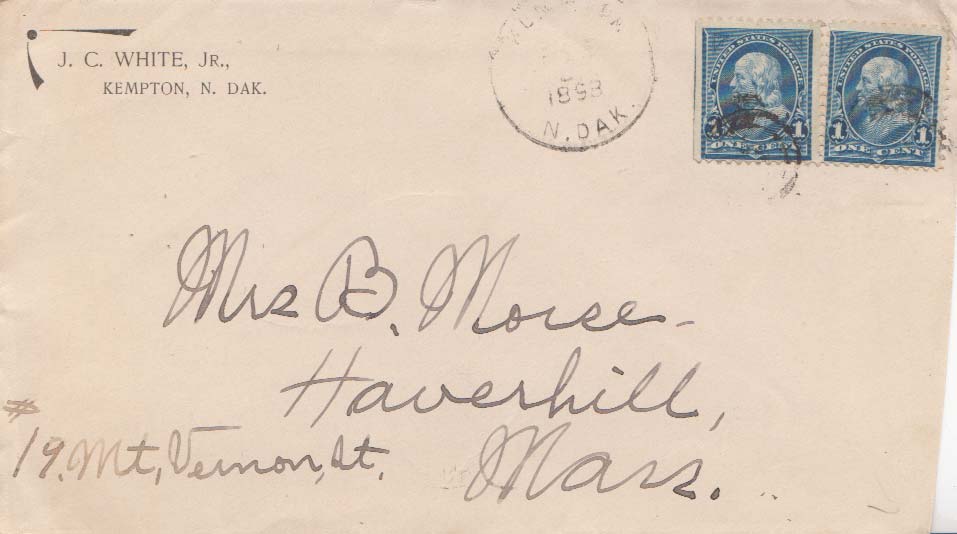 J. C. WHITE, JR.,
KEMPTON, N. DAK.
1898
N. DAK.
UNITED STATES POSTAGE
1 1
ONE CENT
UNITED STATES POSTAGE
1 1
ONE CENT
Mrs B. Morse
Haverhill,
# 19. Mt, Vernon, St.
Mass.